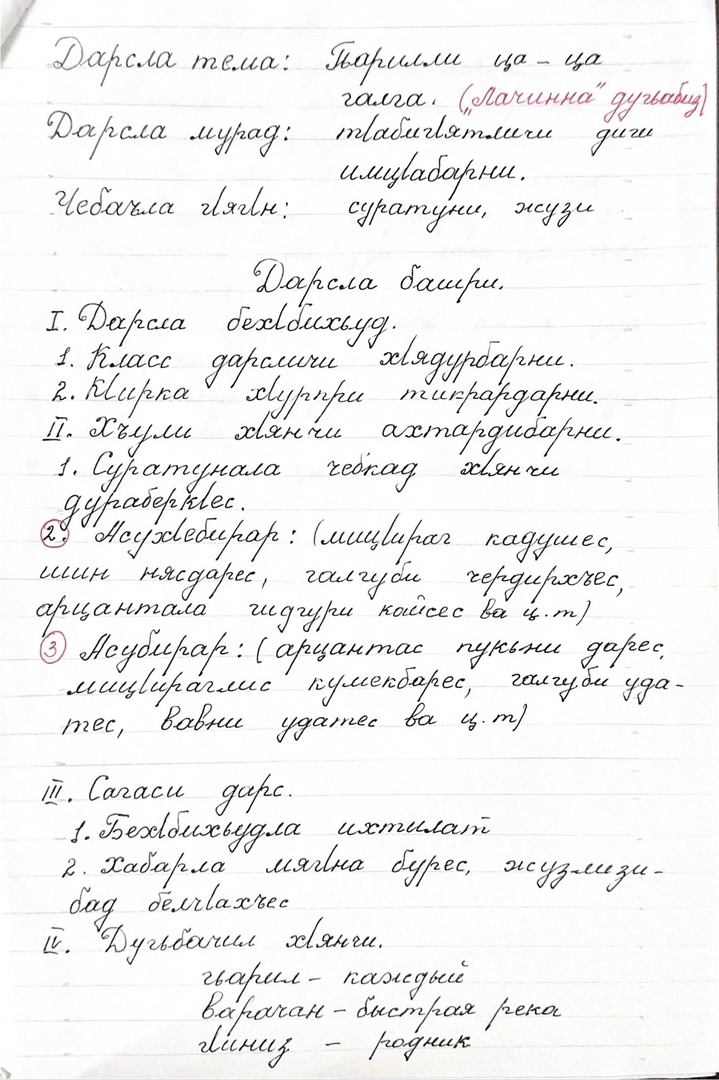 Дарсла тема: Гьарилли ца – ца
галга. („Лачинна“ дугьабиз)
Дарсла мурад: тӀабигӀятличи диги
имцӀабарни.
Чебаъла гӀягӀн: суратуни, жузи
Дарсла башри.
I. Дарсла бехӀбихьуд.
1. Класс дарсличи хӀядурбарни.
2. КӀирка хӀурпри тикрардарни.
II. Хъули хӀянчи ахтардибарни.
1. Суратунала чебкад хӀянчи
дураберкӀес.
2. АсухӀебирар: (мицӀираг кадушес,
шин нясдарес, галгуби чердирхъес,
арцантала гидгури кайсес ва ц.т)
3 Асубирар: (арцантас пукьни дарес,
мицӀираглис кумекбарес, галгуби уда-
тес, вавни удатес ва ц.т)
III. Сагаси дарс.
1. БехӀбихьудла ихтилат
2. Хабарла мягӀна бурес, жузлизи-
бад белчӀахъес
IV. Дугьбачил хӀянчи.
гьарил – каждый
варачан – быстрая река
гӀиниз – родник